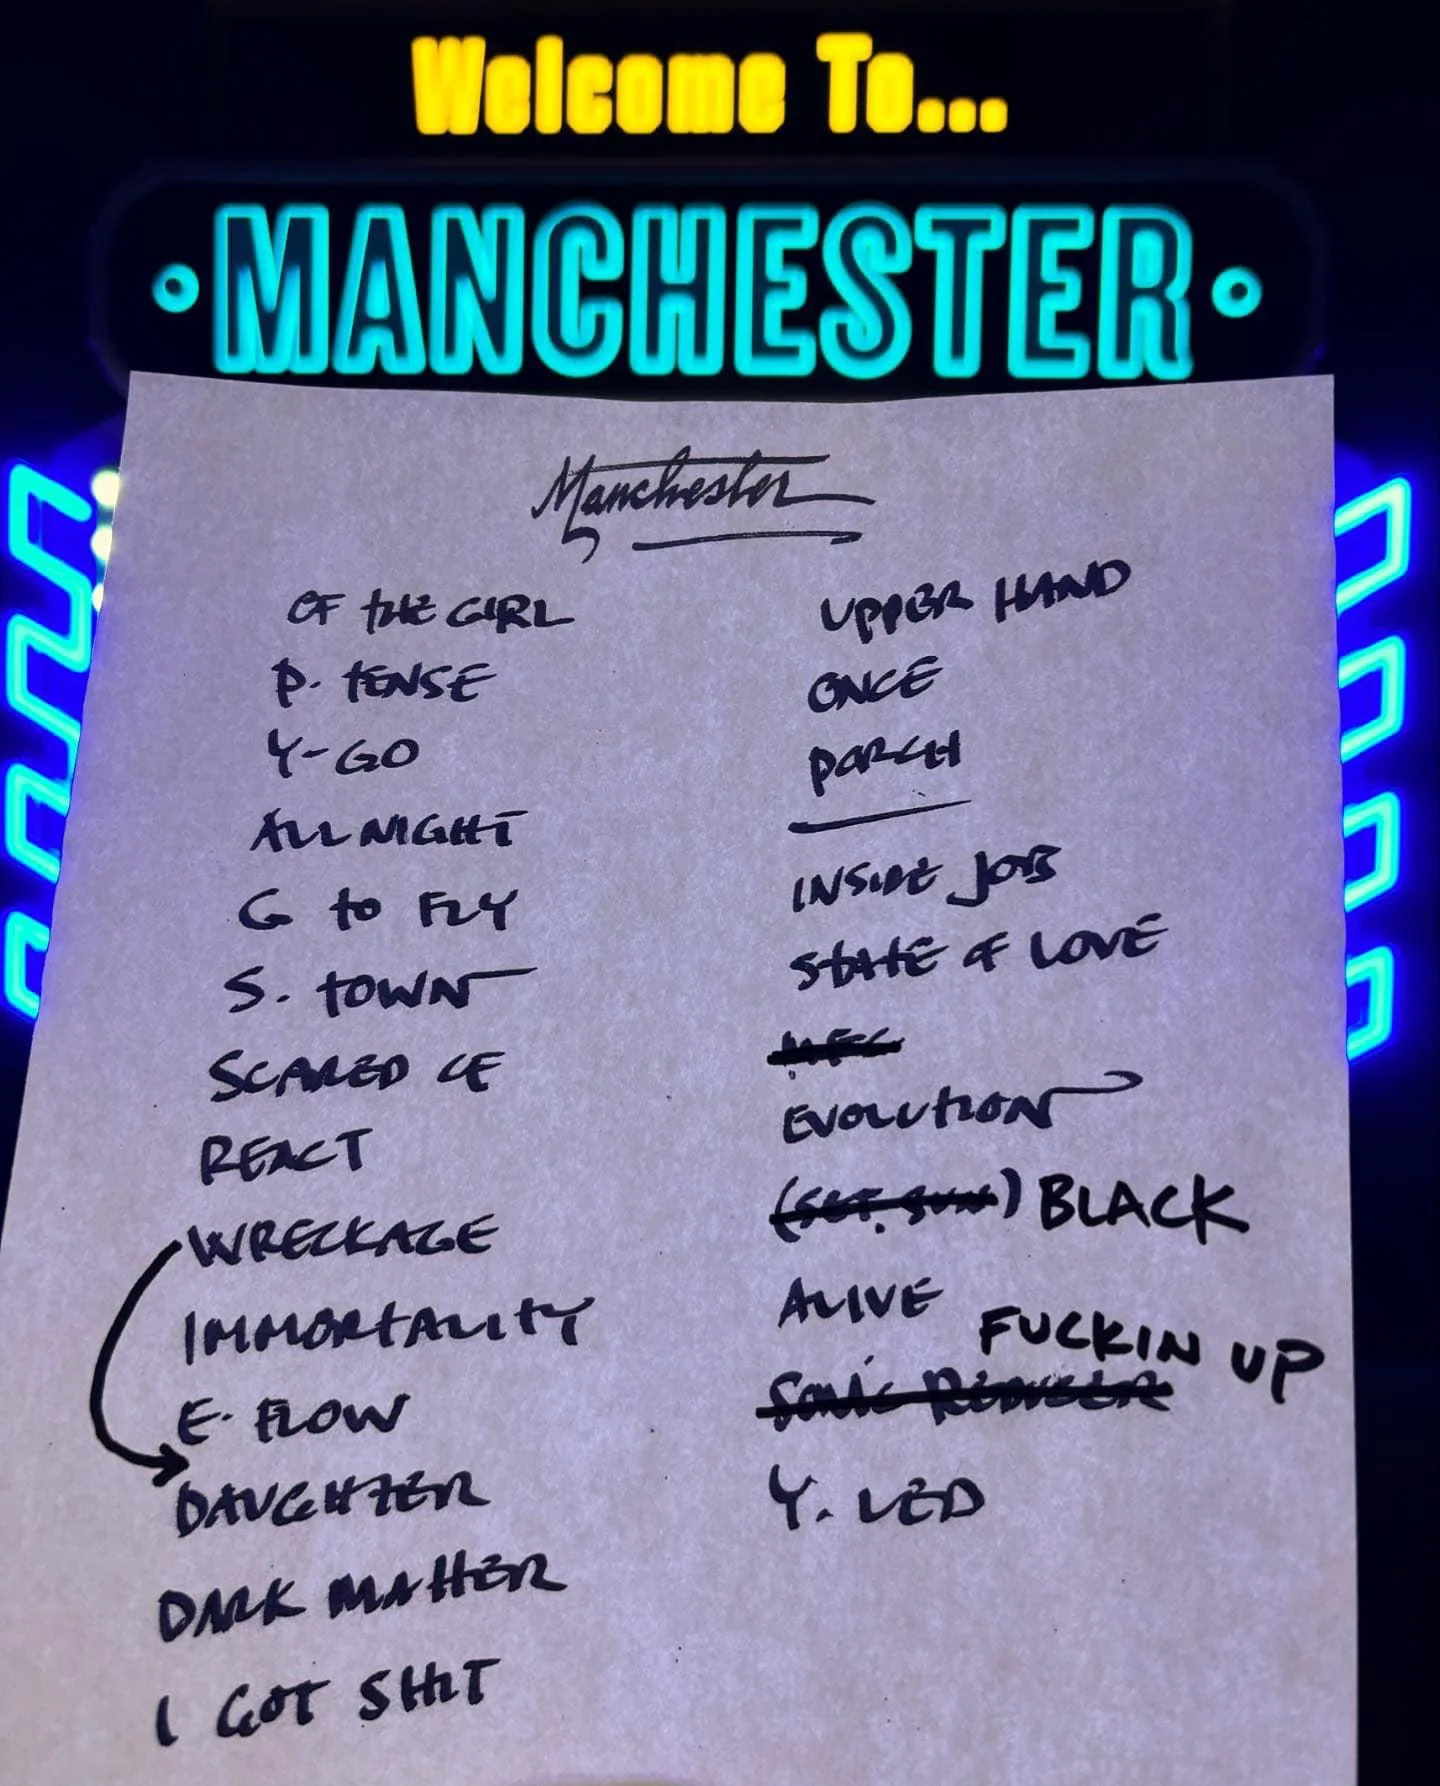 Welcome To...
MANCHESTER
Manchester
OF THE GIRL
P. TENSE
Y-GO
ALL NIGHT
G TO FLY
S. TOWN
SCARED OF
REACT
WRECKAGE
IMMORTALITY
E. FLOW
DAUGHTER
DARK MATTER
I GOT SHIT
UPPER HAND
ONCE
PORCH
INSIDE JOB
STATE OF LOVE
MFC
EVOLUTION
(SET. SUN) BLACK
ALIVE
FUCKIN UP
SONIC REDUCER
Y. LED